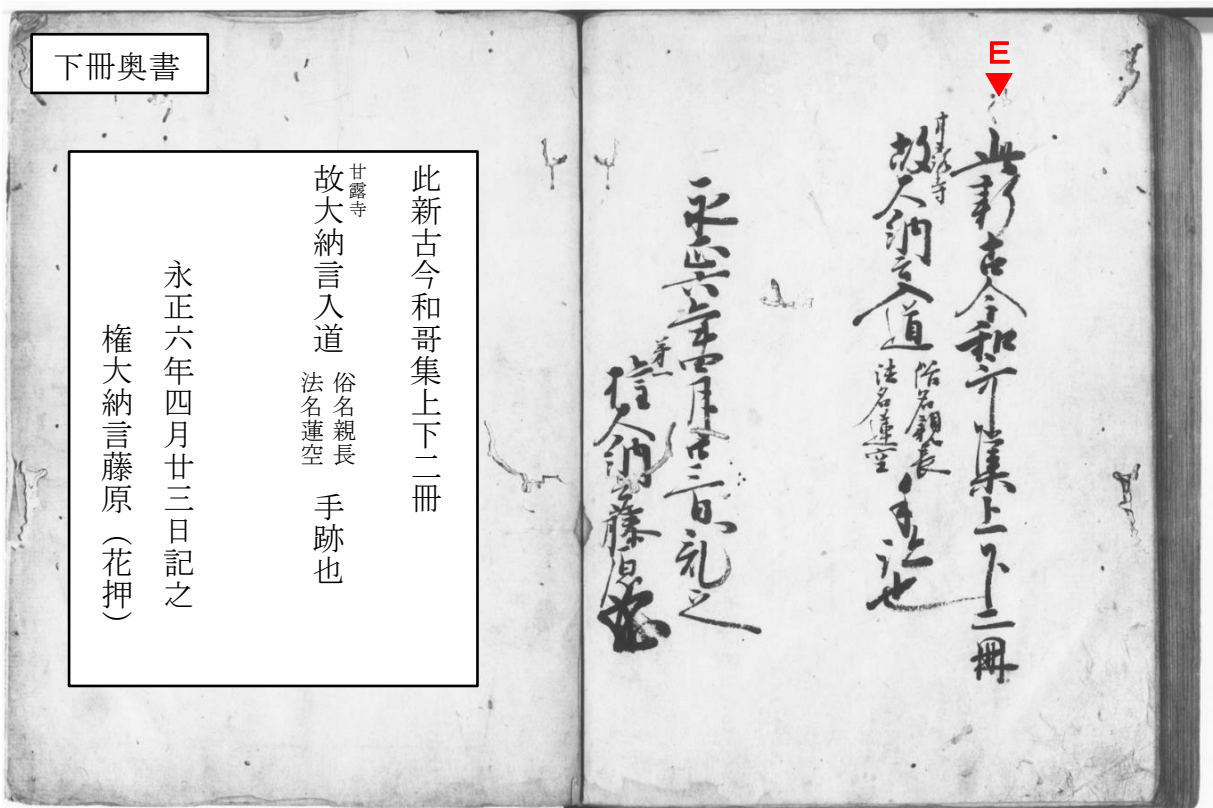 下冊奥書
E
此新古今和哥集上下二冊
甘露寺
故大納言入道 俗名親長 法名蓮空 手跡也
永正六年四月廿三日記之
権大納言藤原
此新古今和哥集上下二冊
甘露寺
故大納言入道 俗名親長 法名蓮空 手跡也
永正六年四月廿三日記之
権大納言藤原(花押)